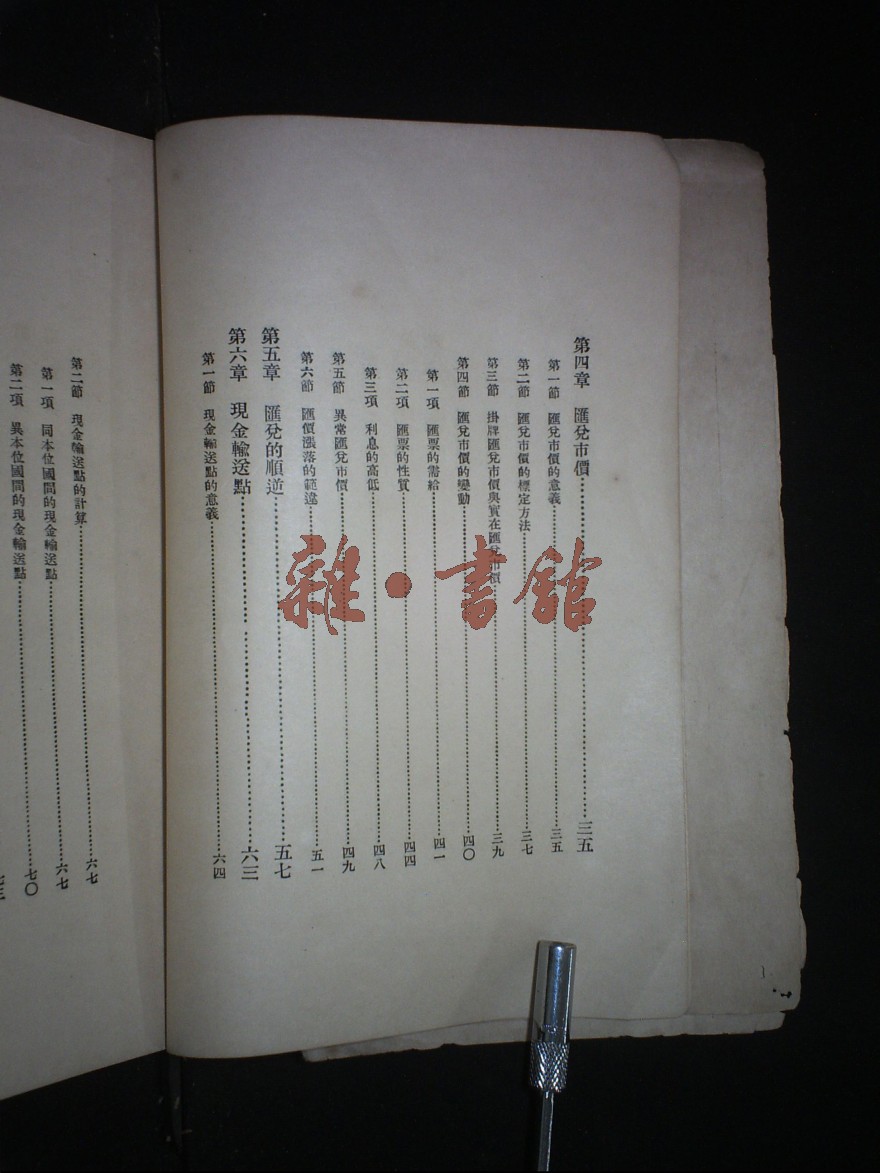 第四章　匯兌市價…………三五
第一節　匯兌市價的意義…………三五
第二節　匯兌市價的標定方法…………三七
第三節　掛牌匯兌市價與實在匯兌市價…………三九
第四節　匯兌市價的變動…………四〇
第一項　匯票的需給…………四一
第二項　匯票的性質…………四四
第三項　利息的高低…………四八
第五節　異常匯兌市價…………四九
第六節　匯價漲落的範違…………五一
第五章　匯兌的順逆…………五七
第六章　現金輸送點…………六三
第一節　現金輸送點的意義…………六四
第二節　現金輸送點的計算…………六七
第一項　同本位國間的現金輸送點…………六七
第二項　異本位國間的現金輸送點…………七〇
雜·書館